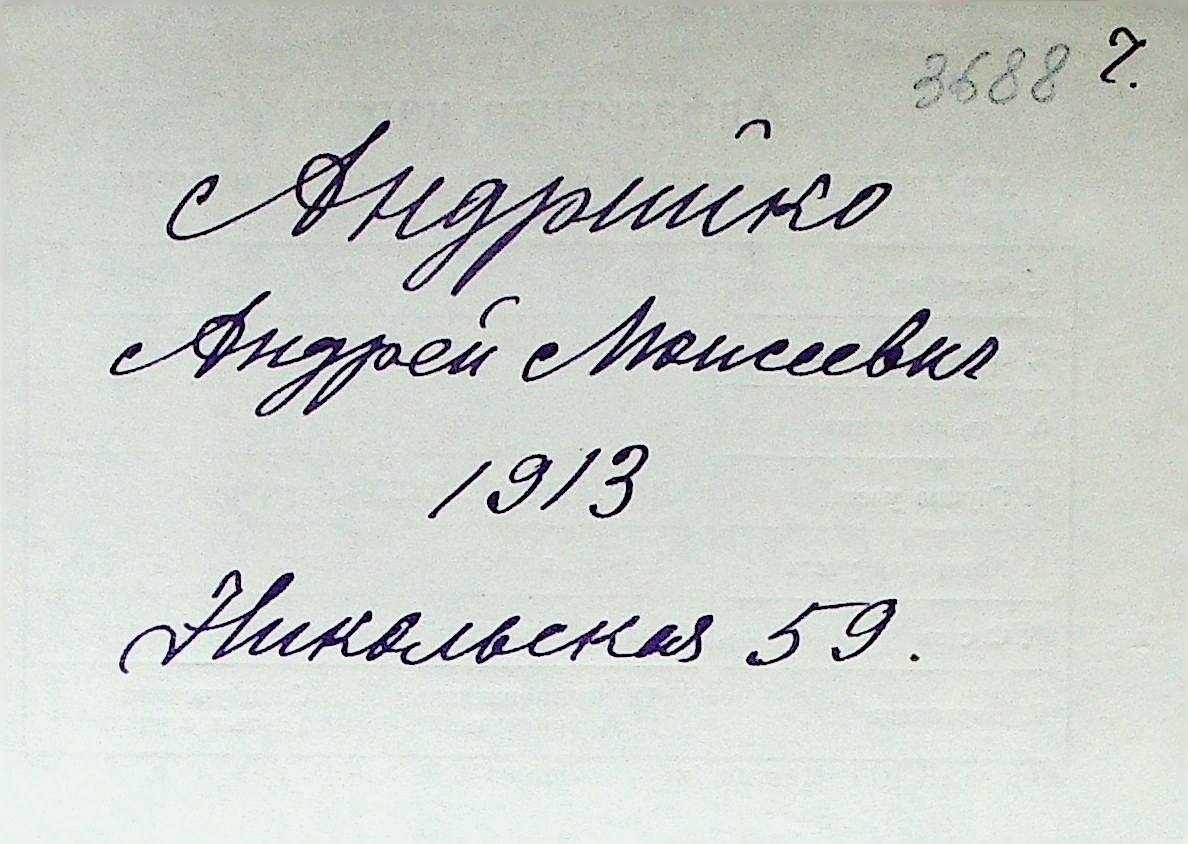 3688 7.
Андрийко
Андрей Моисеевич
1913
Никольская 59.